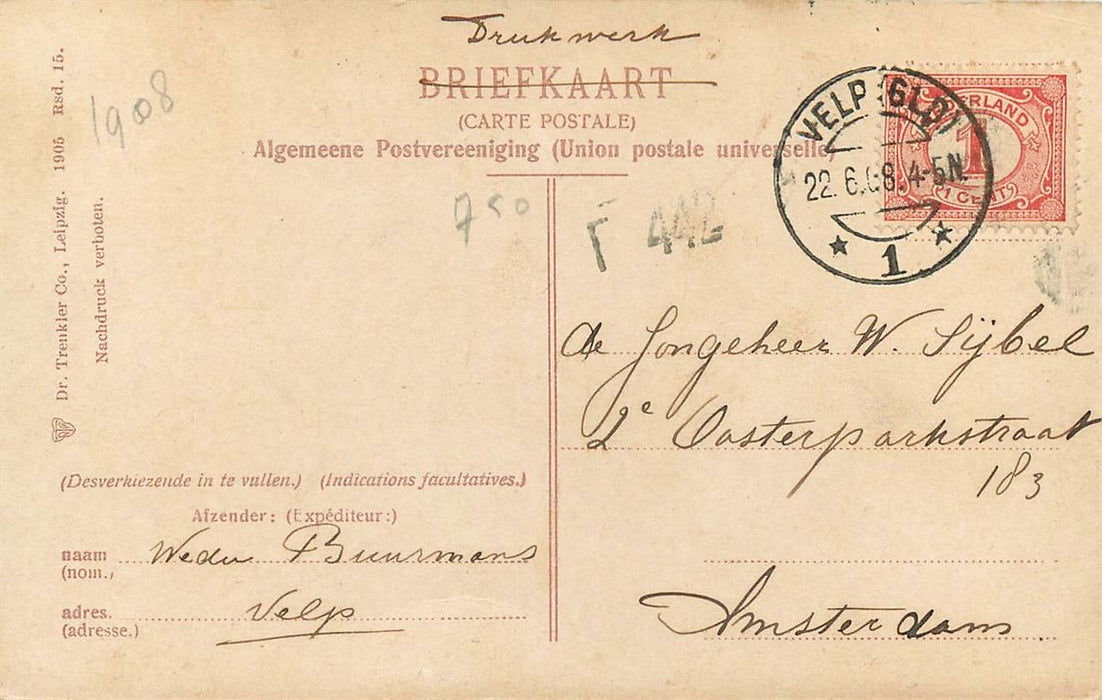 Drukwerk
BRIEFKAART
(CARTE POSTALE)
Algemeene Postvereeniging (Union postale universelle)
Dr. Trenkler Co., Leipzig. 1905 Rsd. 15.
Nachdruck verboten.
1908
750
F 442
VELP (GLD)
22.6.08.4-5N.
1
NEDERLAND
1
1 CENT
de Jongeheer W. Sijbel
2e Oosterparkstraat
183
Amsterdam
(Desverkiezende in te vullen.) (Indications facultatives.)
Afzender: (Expéditeur:)
naam Wedu Buurmans
(nom.)
adres. Velp
(adresse.)